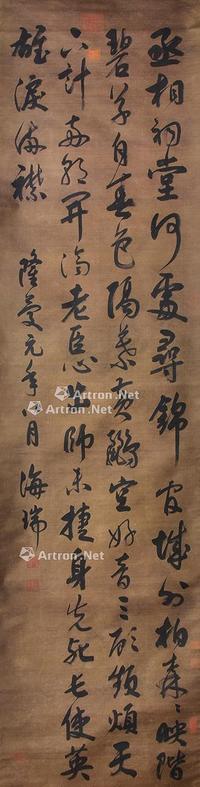 丞相祠堂何處尋錦官城外柏森々映階
碧草自春色隔葉黃鸝空好音三顧頻煩天
下計兩朝開濟老臣心出師未捷身先死長使英
雄淚滿襟
隆慶元年八月 海瑞
Artron.Net
Artron.Net
Artron.Net
Artron.Net